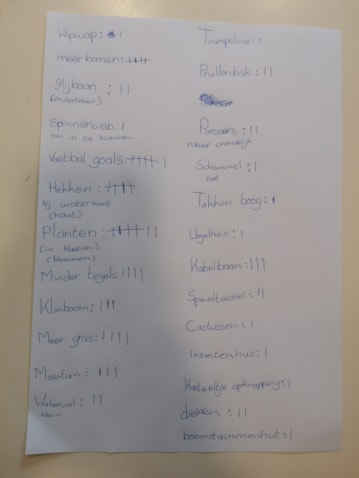 Wipwap: I
meer bomen: IIII
glijbaan : II
(onderbouw)
Spinnenweb: I
om in te klimmen
Voetbal goals: IIII I
Hekken: IIII
bij waterkant
(hout)
Planten: IIII II
(in klassen)
(bloemen)
Minder tegels: IIII
Klimboom: III
Meer gras: IIII
Moestuin: III
Waterval: II
klein
Trampoline: I
Prullenbak: II
Parcours: II
natuur vriendelijk
Schommel: I
net
Takken boog: I
Kabelbaan: III
Speeltoestel: II
Cactussen: I
Insectenhuis: I
opknapping: I
dieren : II
boomstammenhut: I